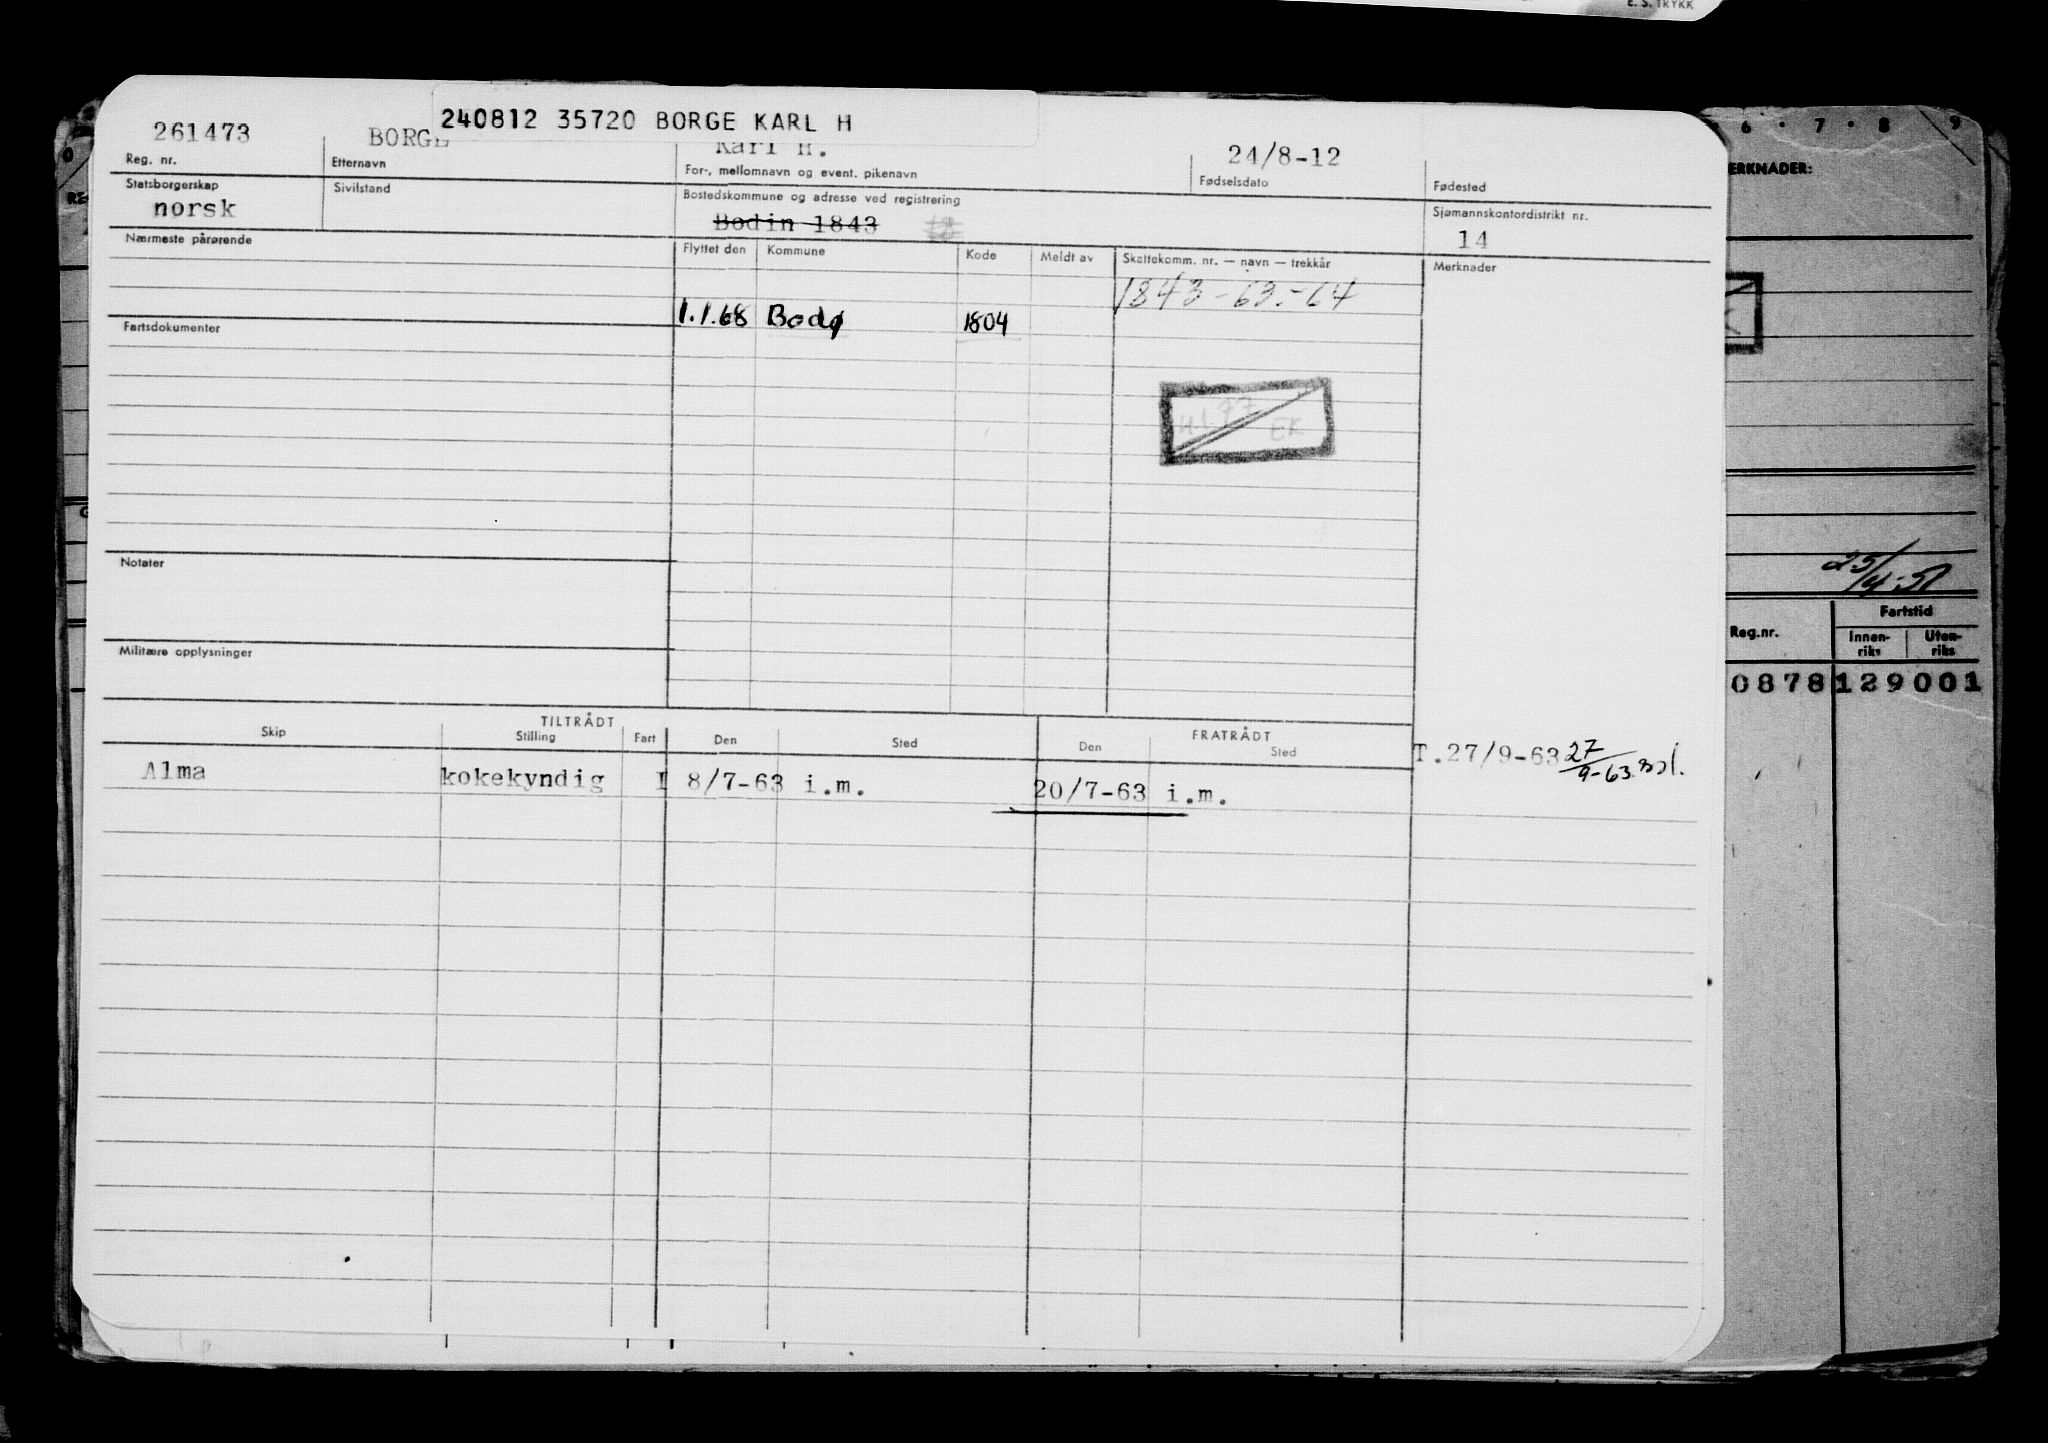 E. S. TRYKK
240812 35720 BORGE KARL H
261473 BORGE Karl H. 24/8-12
Reg. nr. Etternavn For-, mellomnavn og event. pikenavn Fødselsdato Fødested
Statsborgerskap Sivilstand Bostedskommune og adresse ved registrering Sjømannskontordistrikt nr.
norsk Bodin 1843 14
Nærmeste pårørende Flyttet den Kommune Kode Meldt av Skattekomm. nr. — navn — trekkår Merknader
1843-63.-64
1.1.68 Bodø 1804
Fartsdokumenter
77 EK
Notater
Militære opplysninger
TILTRÅDT FRATRÅDT
Skip Stilling Fart Den Sted Den Sted
Alma kokekyndig I 8/7-63 i.m. 20/7-63 i.m. T.27/9-63 27/9-63
6 · 7 · 8 9
ERKNADER:
25/4-51
Fartstid
Reg.nr. Innen-riks Uten-riks
0878 129 001